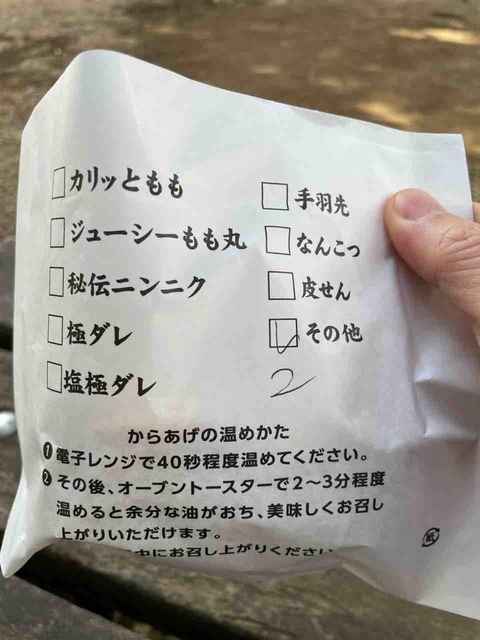 カリッともも
ジューシーもも丸
秘伝ニンニク
極ダレ
塩極ダレ
手羽先
なんこつ
皮せん
その他
2
からあげの温めかた
❶電子レンジで40秒程度温めてください。
❷その後、オーブントースターで2〜3分程度
温めると余分な油がおち、美味しくお召し
上がりいただけます。
中にお召し上がりください
紙